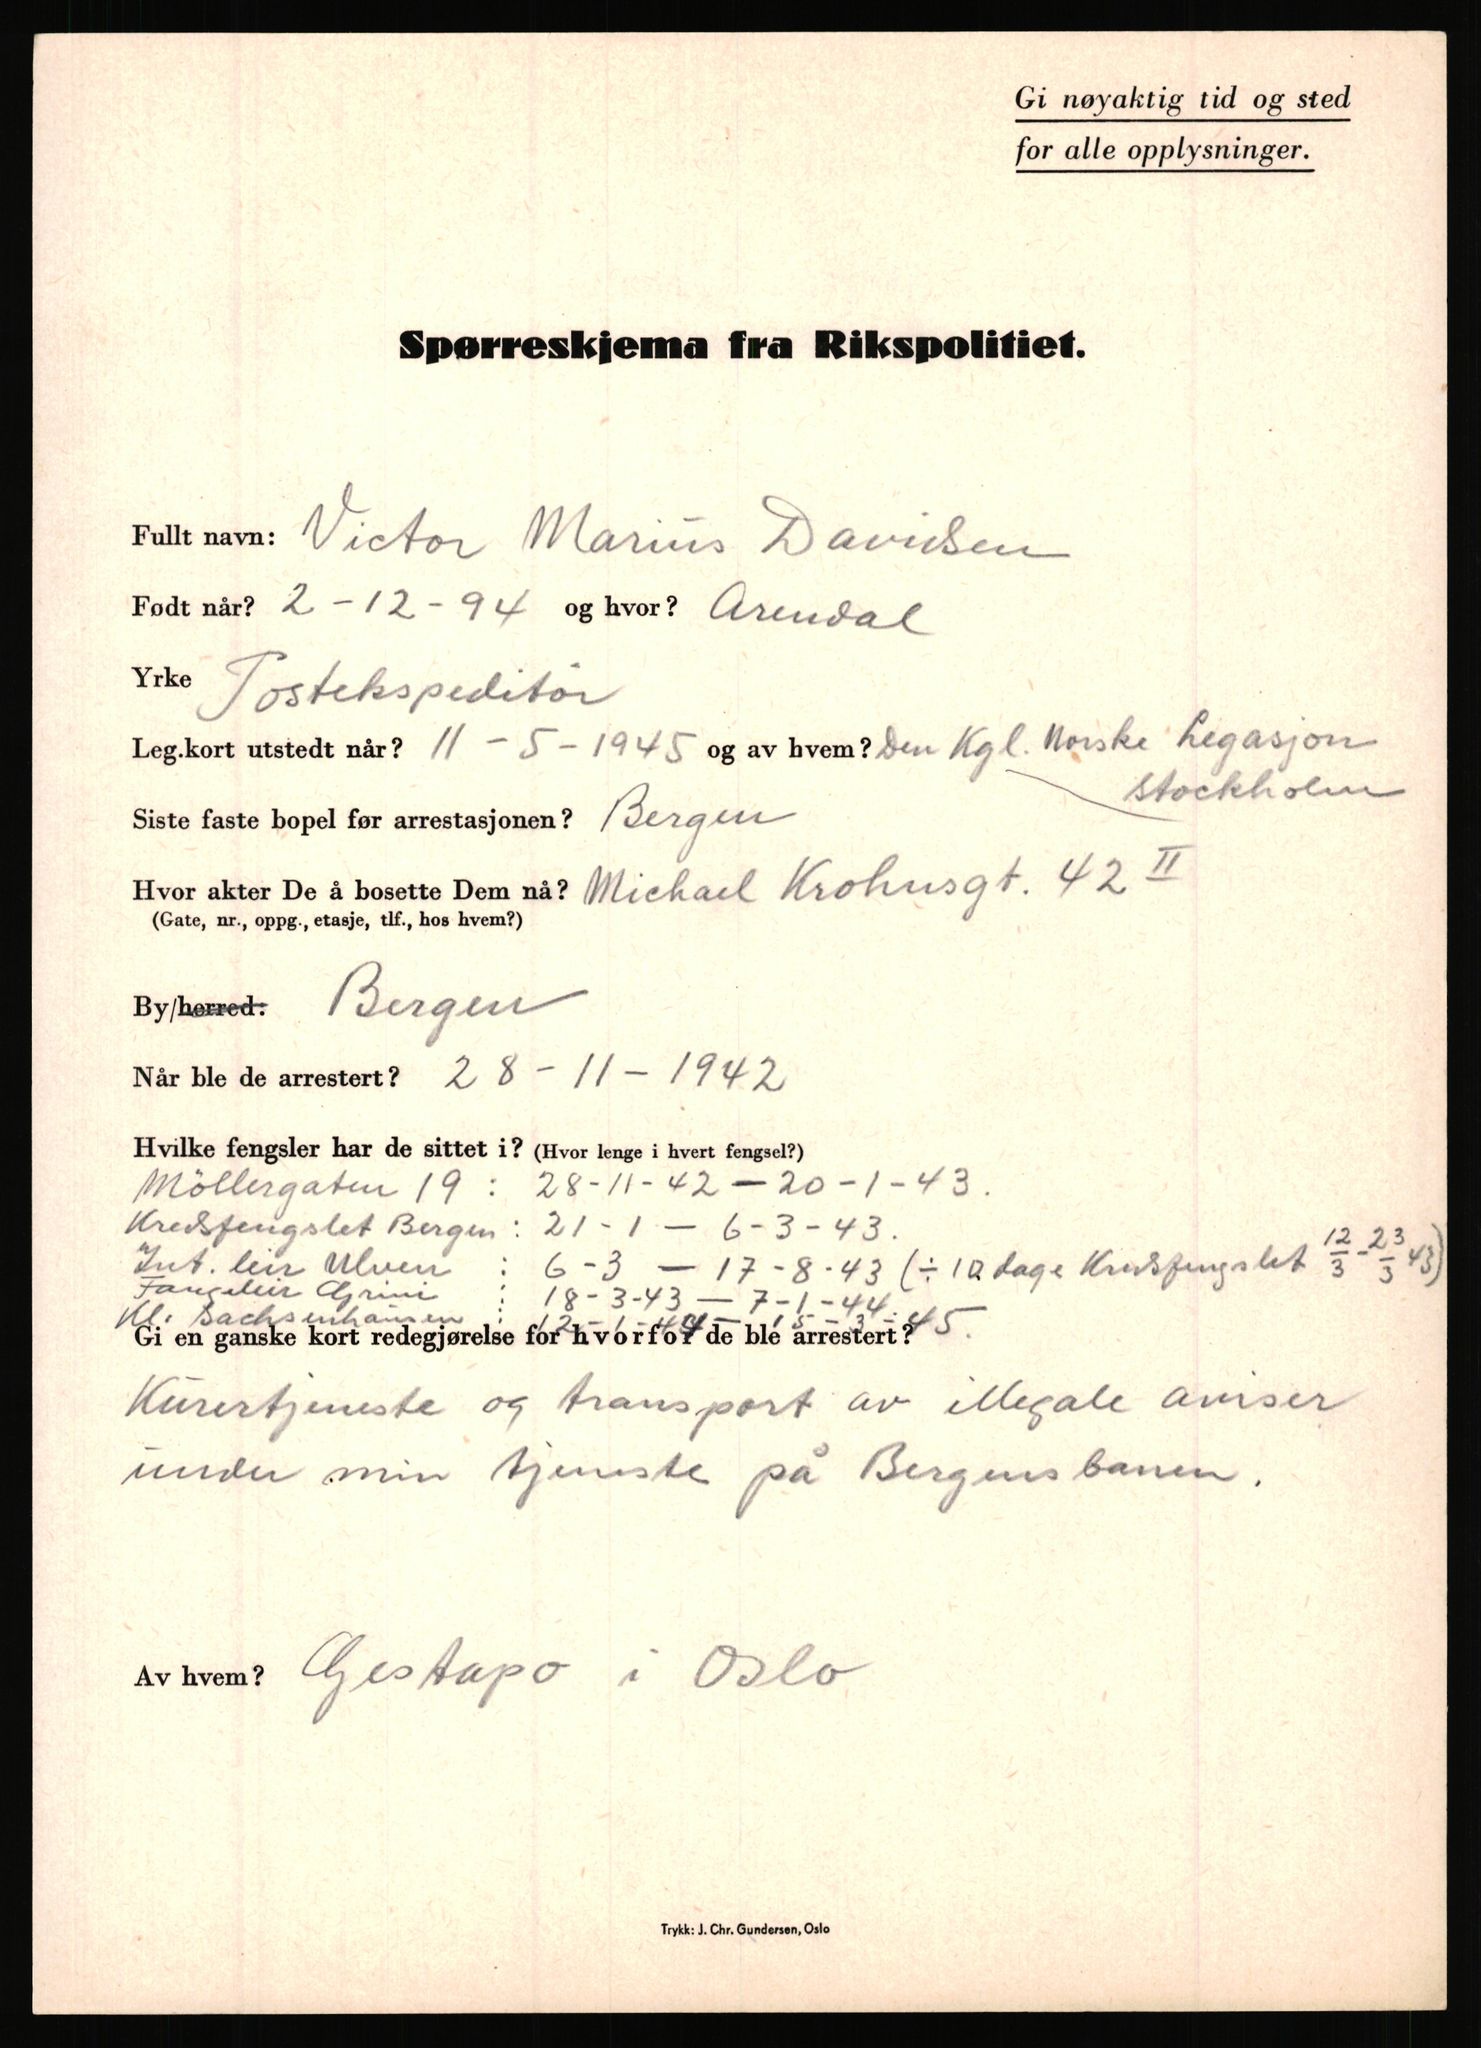 Gi nøyaktig tid og sted
for alle opplysninger.
Spørreskjema fra Rikspolitiet.
Fullt navn: Victor Marius Davidsen
Født når? 2-12-94 og hvor? Arendal
Yrke Postekspeditör
Leg.kort utstedt når? 11-5-1945 og av hvem? Den Kgl. Norske Legasjon
Stockholm
Siste faste bopel før arrestasjonen? Bergen
Hvor akter De å bosette Dem nå? Michael Krohnsgt. 42 II
(Gate, nr., oppg., etasje, tlf., hos hvem?)
By/herred: Bergen
Når ble de arrestert? 28-11-1942
Hvilke fengsler har de sittet i? (Hvor lenge i hvert fengsel?)
Möllergaten 19 : 28-11-42 — 20-1-43.
Kredsfengslet Bergen : 21-1 — 6-3-43.
Int. leir Ulven : 6-3 — 17-8-43 (÷ 10 dage Kredsfengslet 12/3 - 23/3 43)
Fangeleir Grini : 18-3-43 — 7-1-44.
Kl. Sachsenhausen : 12-1-44 — 15-3-45.
Gi en ganske kort redegjørelse for hvorfor de ble arrestert?
Kurertjeneste og transport av illegale aviser
under min tjeneste på Bergensbanen.
Av hvem? Gestapo i Oslo
Trykk: J. Chr. Gundersen, Oslo